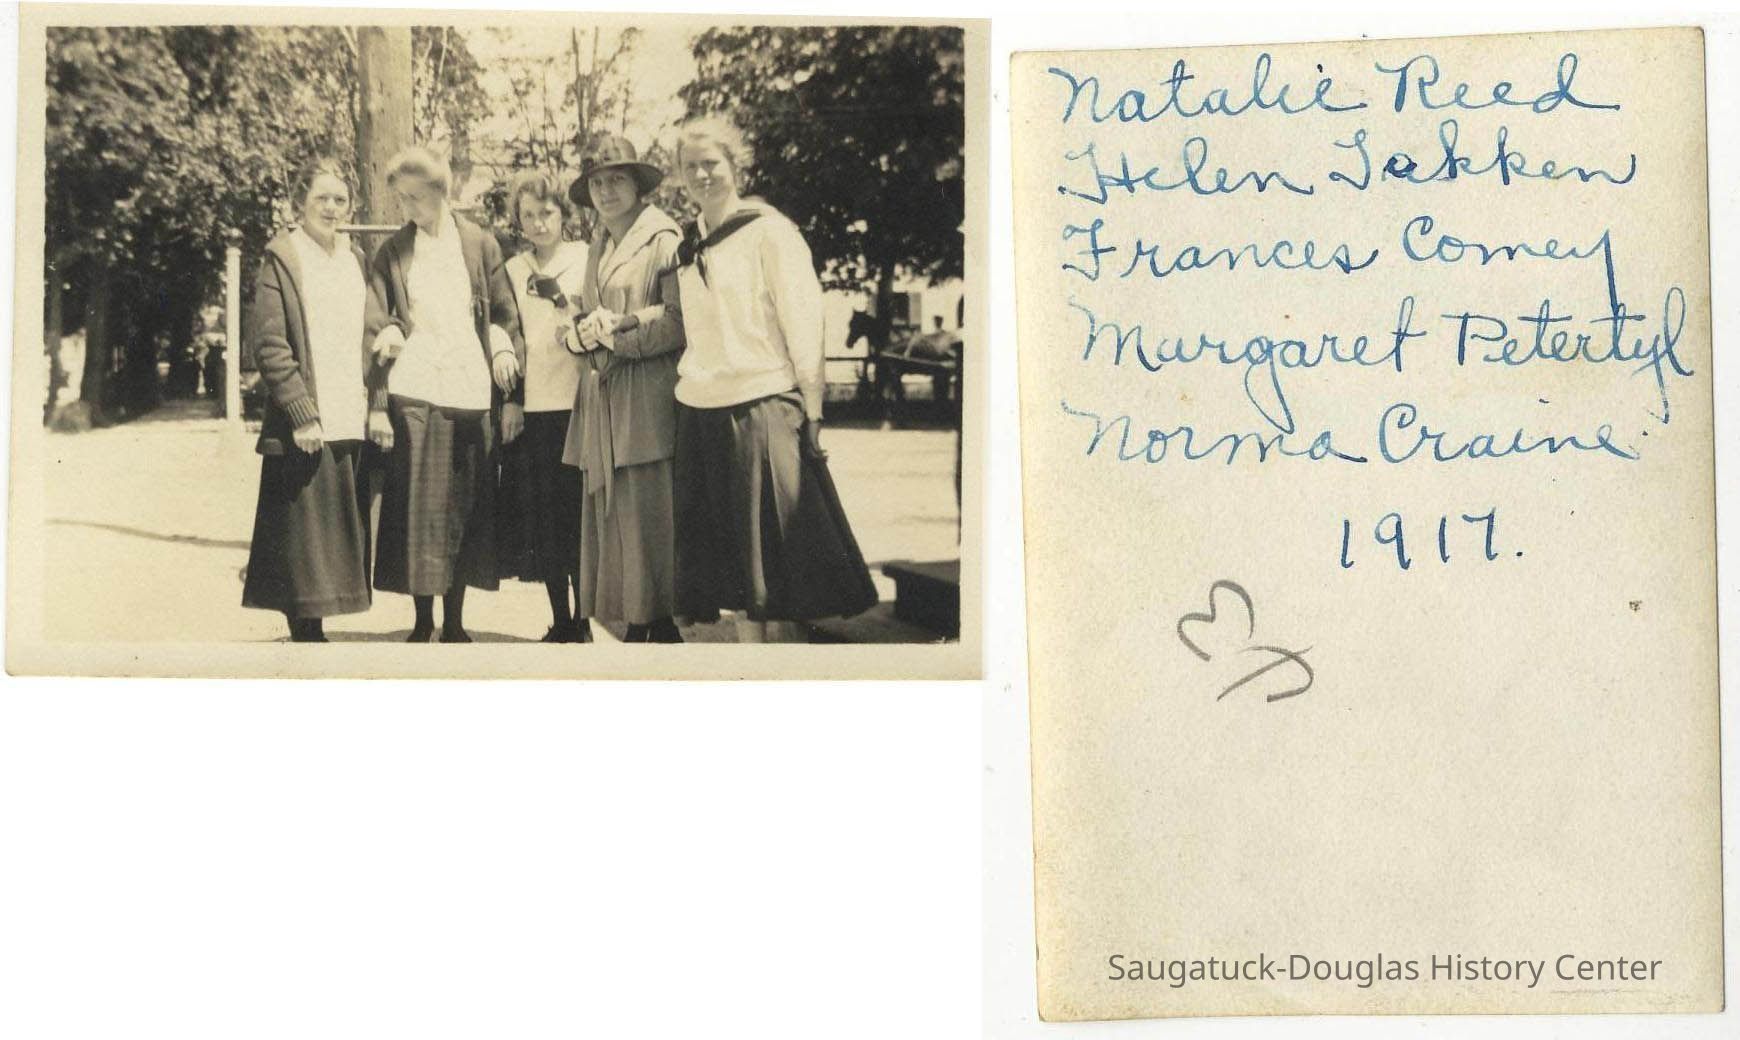 Natalie Reed
Helen Takken
Frances Comey
Margaret Petertyl
Norma Craine.
1917.
Saugatuck-Douglas History Center